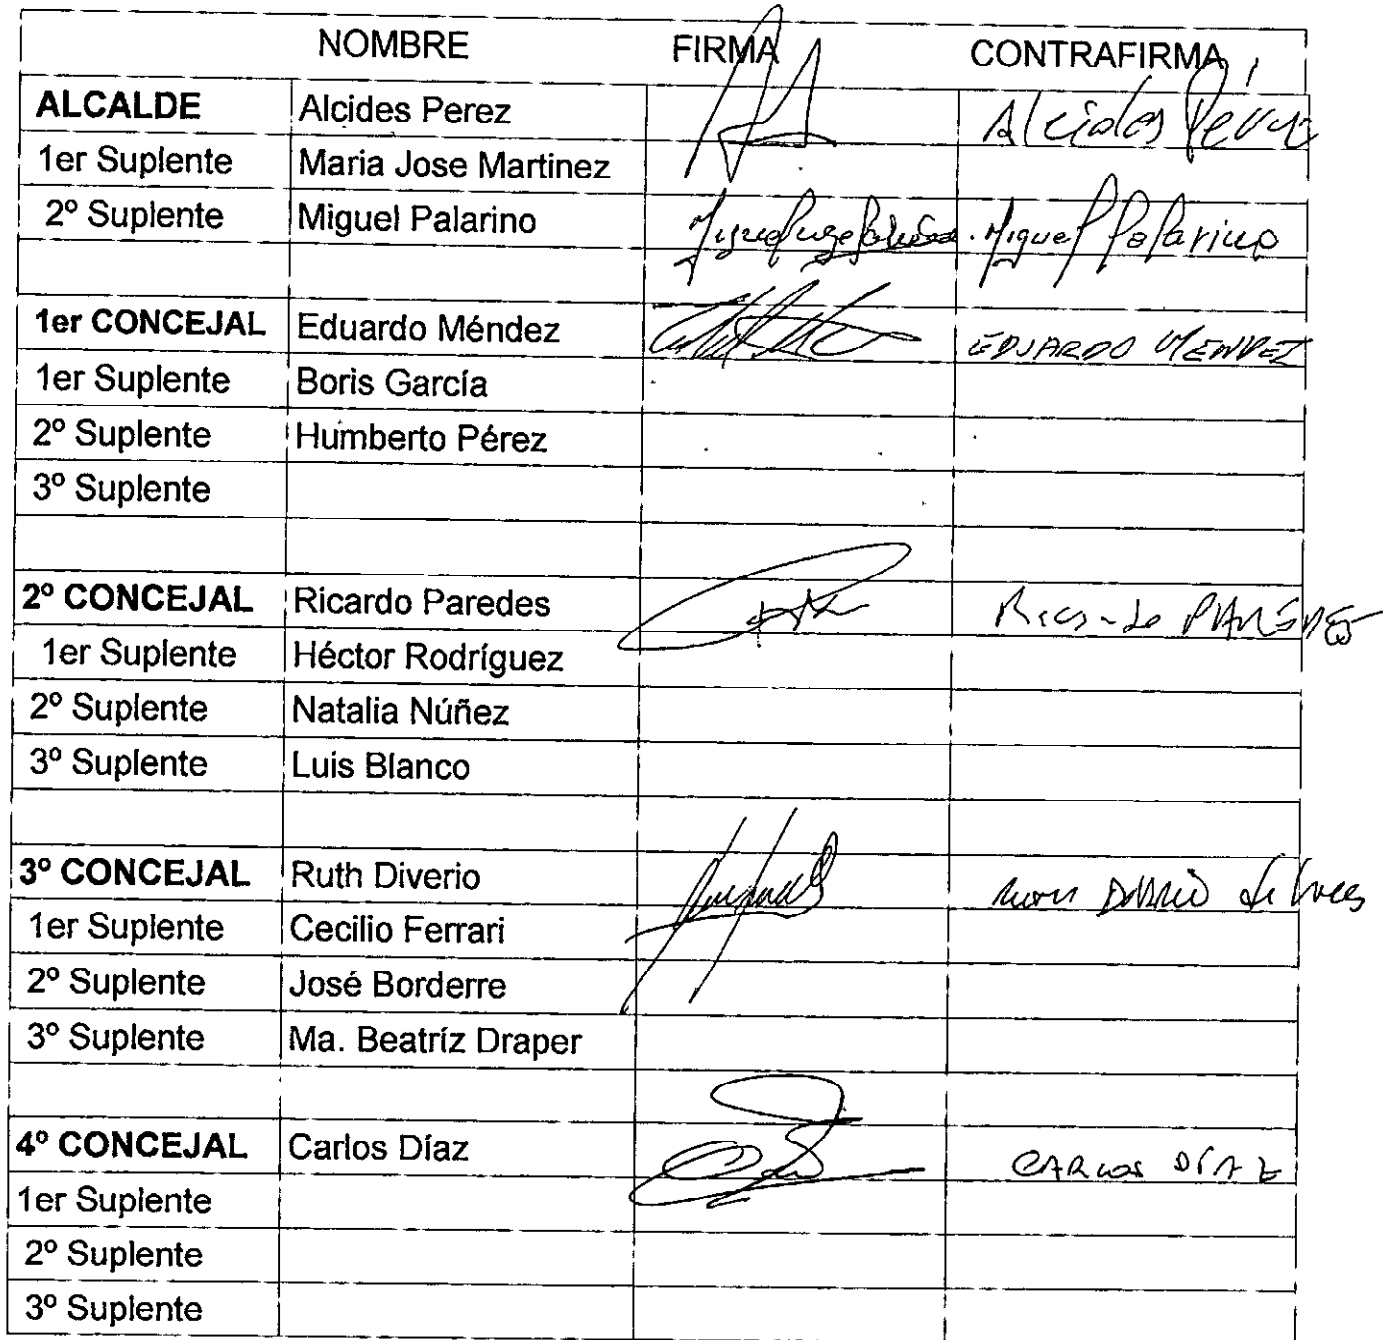 NOMBRE FIRMA CONTRAFIRMA
ALCALDE Alcides Perez Alcides Pérez
1er Suplente Maria Jose Martinez
2º Suplente Miguel Palarino Miguel Palarino
1er CONCEJAL Eduardo Méndez EDUARDO MENDEZ
1er Suplente Boris García
2º Suplente Humberto Pérez
3º Suplente
2º CONCEJAL Ricardo Paredes Ricardo PAREDES
1er Suplente Héctor Rodríguez
2º Suplente Natalia Núñez
3º Suplente Luis Blanco
3º CONCEJAL Ruth Diverio
1er Suplente Cecilio Ferrari
2º Suplente José Borderre
3º Suplente Ma. Beatríz Draper
4º CONCEJAL Carlos Díaz CARLOS DÍAZ
1er Suplente
2º Suplente
3º Suplente